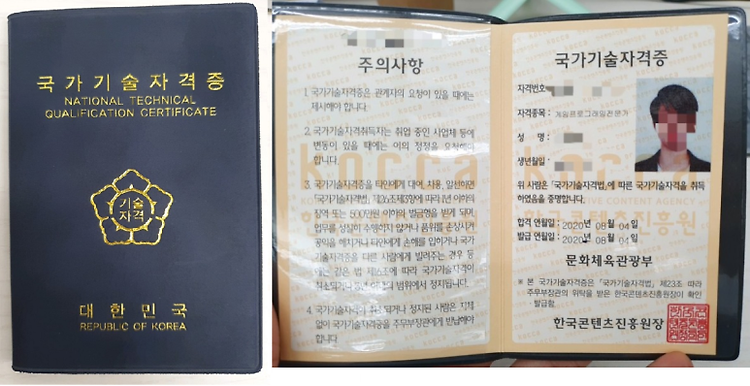 국가기술자격증
NATIONAL TECHNICAL
QUALIFICATION CERTIFICATE
기술
자격
대한민국
REPUBLIC OF KOREA
주의사항
1. 국가기술자격증은 관계자의 요청이 있을 때에는
제시해야 합니다.
2. 국가기술자격취득자는 취업 중인 사업체 등에
변동이 있을 때에는 이의 정정을 요청해야
합니다.
3. 국가기술자격증을 타인에게 대여, 차용, 알선하면
「국가기술자격법」 제26조제3항에 따라 1년 이하의
징역 또는 500만원 이하의 벌금형을 받게 되며,
업무를 성실히 수행하지 않거나 품위를 손상시켜
공익을 해치거나 타인에게 손해를 입히거나 국가
기술자격증을 다른 사람에게 빌려주는 경우 등
에는 같은 법 제16조에 따라 국가기술자격이
취소되거나 범위에서 정지됩니다.
4. 국가기술자격이 취소되거나 정지된 사람은 지체
없이 국가기술자격증을 주무부장관에게 반납해야
합니다.
kocca
한국콘텐츠진흥원
국가기술자격증
자격번호:
자격종목: 게임프로그래밍전문가
성 명:
생년월일:
위 사람은 「국가기술자격법」에 따른 국가기술자격을 취득
하였음을 증명합니다.
합격 연월일: 2020년 08월 04일
발급 연월일: 2020년 08월 04일
문화체육관광부
※ 본 국가기술자격증은 「국가기술자격법」 제23조 따라
주무부장관의 위탁을 받은 한국콘텐츠진흥원장이 확인
발급함.
한국콘텐츠진흥원장